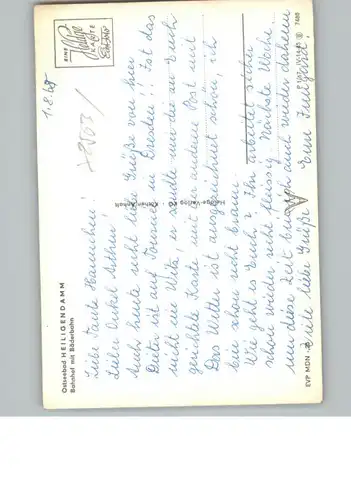 Ostseebad HEILIGENDAMM
Bahnhof mit Bäderbahn
1.8.69
Liebe Tante Hannchen!
Lieber Onkel Arthur!
Auch heute recht liebe Grüße von hier
Dieter ist auf Tournee in Dresden!! Ist das
nicht ein Witz, er sandte mir die an Euch
gerichtete Karte mit der anderen Post mit
Das Wetter ist ausgezeichnet schön, ich
bin schon recht braun.
Wie geht es Euch? Ihr arbeitet sicher
schon wieder recht fleißig. Nächste Woche
um diese Zeit bin ich auch wieder daheim
Viele liebe Grüße Eure
EINE
KARTE
Verlag KG · Köthen-Anhalt
EVP MDN